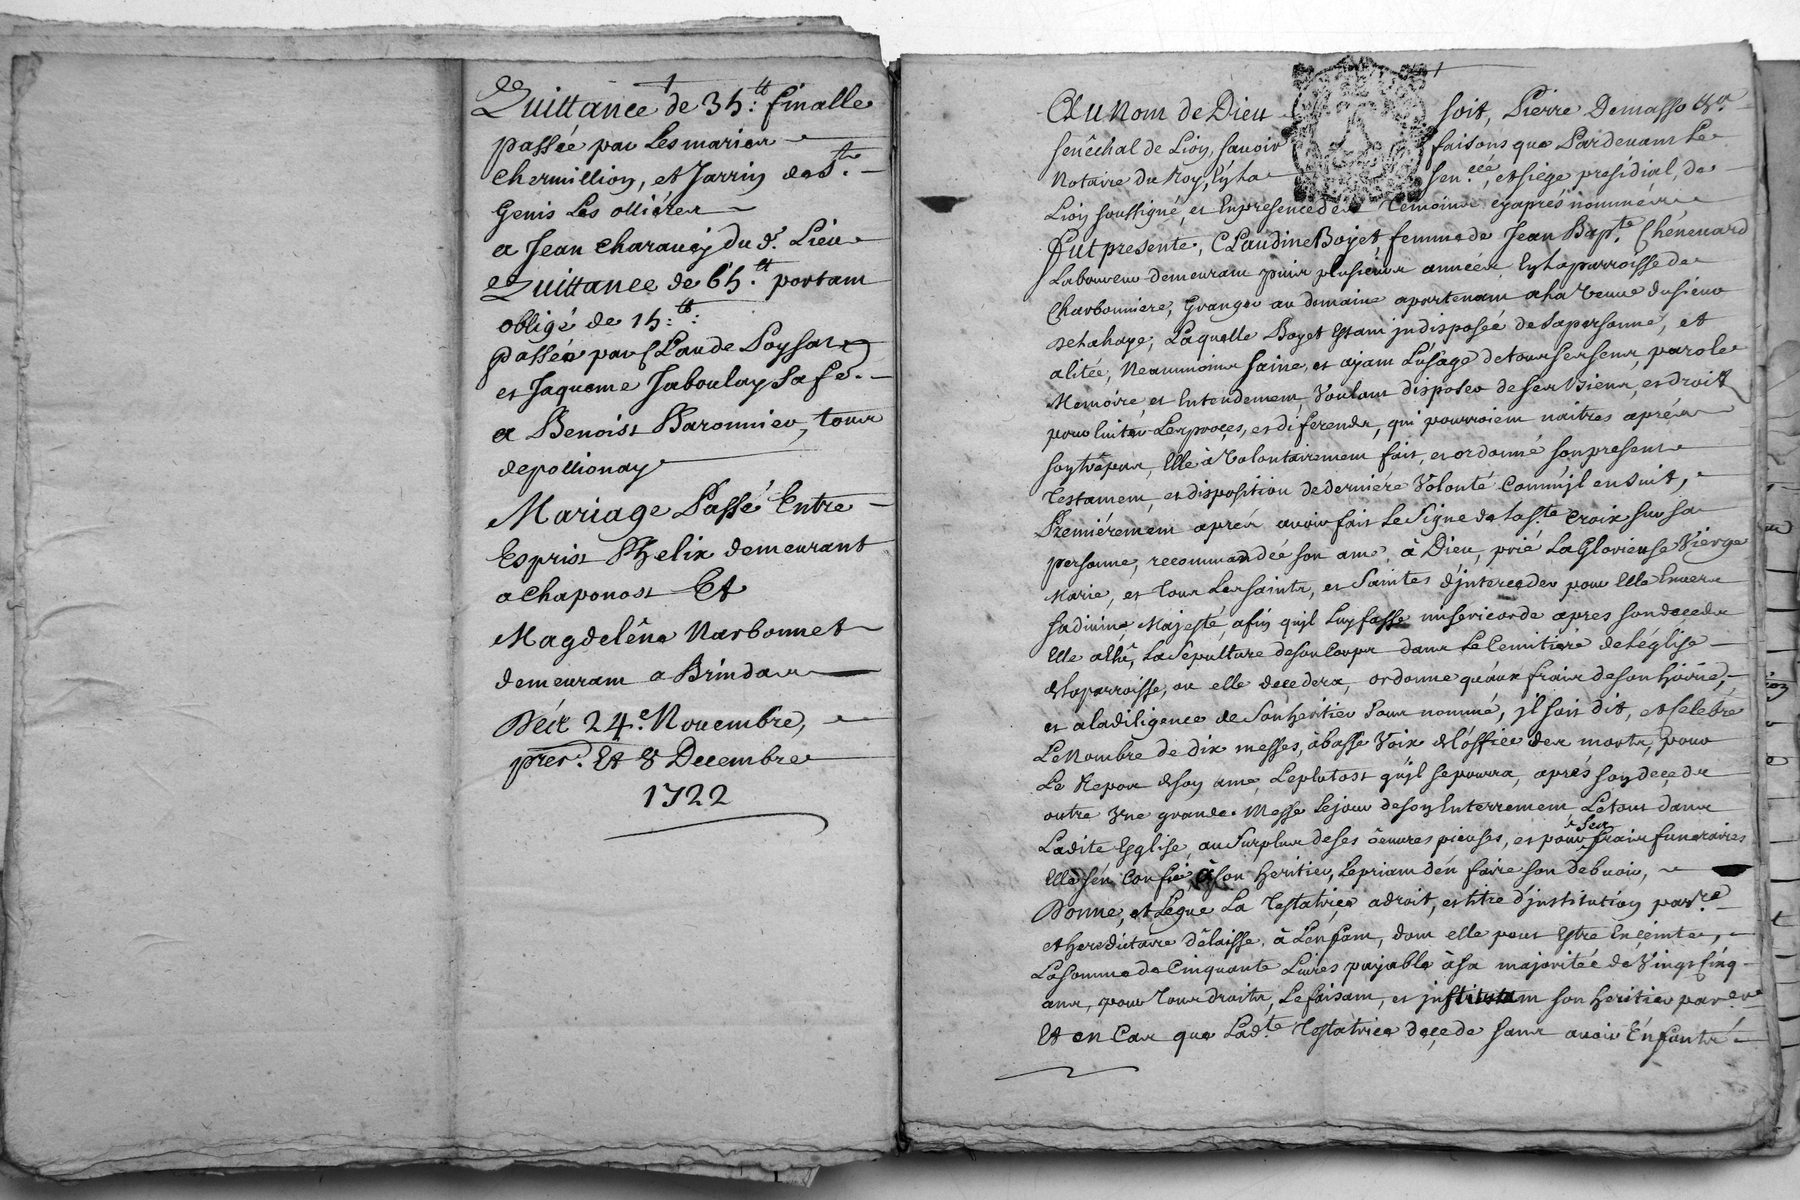 Quittance de 35:lt finalle
passée par Les mariez
Chermillion, et Jarrin de St.
Genis Les ollières
a Jean Charavay du d. Lieu
Quittance de 65.lt portant
obligé de 15:lt:
passée par Claude Poysat
et Jaqueme Jaboulay sa fe.
a Benoist Baronnier, tous
de pollionay
Mariage Passé Entre
Esprit Phelix demeurant
a Chaponost Et
Magdelêne Narbonnet
demeurant a Brindas
24e. Novembre,
pres. Et 8 Decembre
1722
Au Nom de Dieu soit, Pierre Demasso
senêchal de Lion, savoir faisons que Pardevant Le
Notaire du Roy, En la senceé, et siege présidial, de
Lion soussigné, et En presence des Temoins cy après nommés
Fut presente, Claudine Boyet, femme de Jean Bapte. Chénevard
Laboureur demeurant puis plusieurs années En la parroisse de
Charbonniere, Granger au domaine apartenant a la veuve du sieur
Delahaye, Laquelle Boyet Estant jndisposée de sa personne, et
alitée, Neanmoins saine, et ayant L'usage de tous ses sens, parole
Memoire, et Entendement, Voulant disposer de ses Biens, et droits
pour Eviter Les proçes, et diferends, qui pourroient naitres après
son trêpas, Elle à Volontairement fait, et ordonné son present
Testament, et disposition de derniére Volonté Comm'jl ensuit,
Premiérement aprés avoir fait Le Signe de la Ste. Croix sur sa
personne, recommandée son ame, à Dieu, prié La Glorieuse Vierge
Marie, et Tous Les saints, et Saintes d'jnterceder pour Elle Envers
sa divine Majesté, afin qu'jl Luy fasse misericorde apres son deceds
Elle allû, La Sépulture de son Corps dans Le Cemitiére de L'église
de la parroisse, ou elle decedera, ordonne qu'aux frais de son hoirie,
et a la diligence de Son heritier Sous nommé, jl soit dit, et Celebré
Le Nombre de dix messes, à basse Voix de L'office des morts, pour
Le Repos de son ame, Le plutost qu'jl se pourra, aprés son deçeds
outre Une grande Messe Le jour de son Enterrement Le tout dans
Ladite Eglise, au Surplus de ses oeuvres pieuses, et pour ses frais funeraires
Elle s'en Confie à son heritier, Le priant d'en faire son debvoir,
Donne, et Legue La Testatrice a droit, et titre d'jnstitution parre
et hereditaire dêlaisse, à L'enfant, dont elle peut Estre Enceinte,
La somme de Cinquante Livres payable à sa majoritée de Vingt Cinq
ans, pour Tous droits, Le faisant, et jnstituant son heritier par.er
Et en Cas que Ladte. Testatrice deçede sans avoir Enfanté